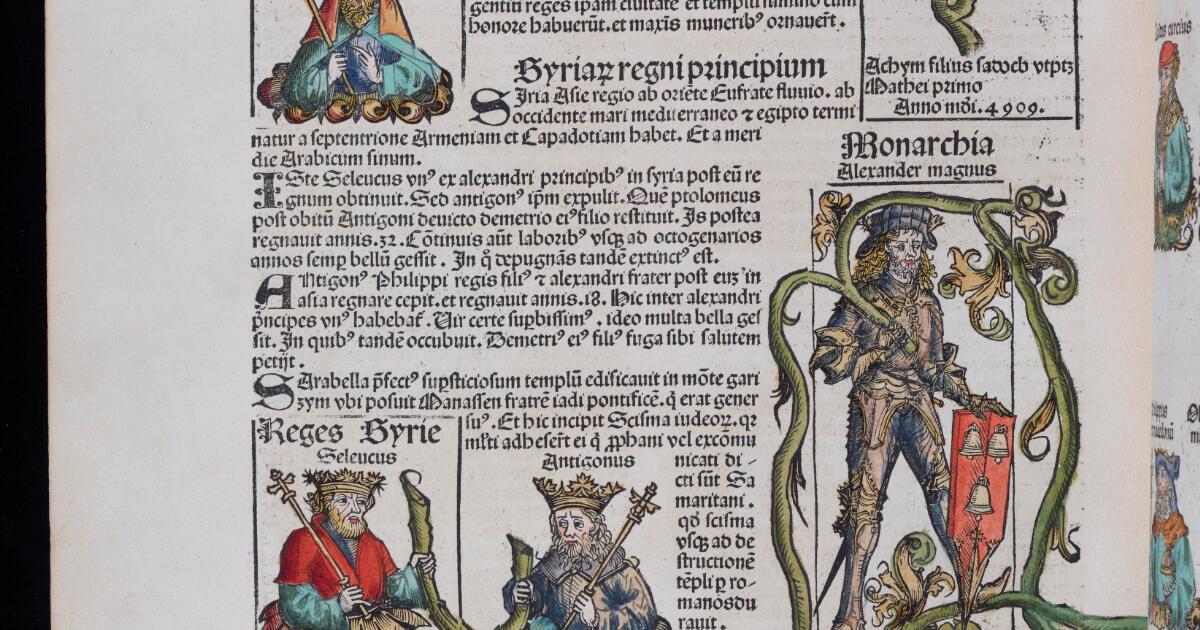 gentiū reges ipam ciuitatē et templū summo cum
honore habuerūt.et maxīs munerib⁹ ornauer̄t.
Syriaꝝ regni principium
SIria Asie regio ab oriēte Eufrate fluuio. ab
occidente mari medii erraneo ⁊ egipto termi
natur a septentrione Armeniam et Capadotiam habet. Et a meri
die Arabicum sinum.
ISte Seleucus vn⁹ ex alexandri principib⁹ in syria post eū re
gnum obtinuit. Sed antigon⁹ ip̄m expulit. Quē ptolomeus
post obitū Antigoni deuicto demetrio ei⁹ filio restituit. Is postea
regnauit annis.32. Cōtinuis aūt laborib⁹ vsqꝫ ad octogenarios
annos semꝑ bellū gessit. In q̄ depugnās tandē extinct⁹ est.
ANtigon⁹ Philippi regis fili⁹ ⁊ alexandri frater post euꝫ in
asia regnare cepit.et regnauit annis.18. Hic inter alexandri
p̄ncipes vn⁹ habebat̄. Uir certe suꝑbissim⁹. ideo multa bella ges
sit. In quib⁹ tandē occubuit. Demetri⁹ ei⁹ fili⁹ fuga sibi salutem
petijt.
SArabella p̄fect⁹ suꝑsticiosum templū edificauit in mōte gari
zym vbi posuit Manassen fratrē iadi pontificē.q̄ erat gener
su⁹. Et hic incipit Scisma iudeoꝝ.qꝛ
ml̄ti adheser̄t ei q̄ ꝓphani vel excōmu
nicati di-
cti sūt Sa
maritani.
qd̄ scisma
vsqꝫ ad de
structionē
tēpli ꝑ ro-
manos du
rauit.
Reges Syrie
Seleucus
Antigonus
Achym filius sadoch vtptꝫ
Mathei primo
Anno mūi.4909.
Monarchia
Alexander magnus